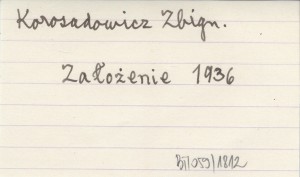 Korosadowicz Zbign.
Założenie 1936
BJ/059/1812